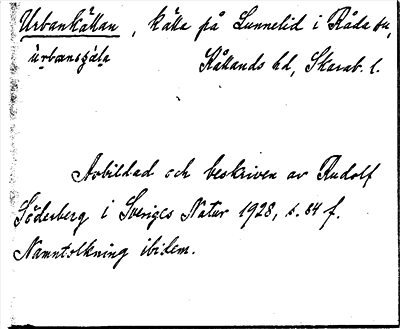 Urbankällan, källa på Lunnelid i Råda sn,
ùrbansçä̀la Kållands hd, Skarab. l.
Avbildad och beskriven av Rudolf
Söderberg i Sveriges Natur 1928, s. 84 f.
Namntolkning ibidem.